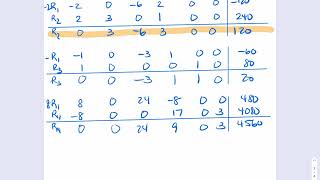 -2R₁ -2 0 -6 2 0 0 -120
R₂ 2 3 0 1 0 0 240
R₂ 0 3 -6 3 0 0 120
-R₁ -1 0 -3 1 0 0 -60
R₃ 1 0 0 0 1 0 80
R₃ 0 0 -3 1 1 0 20
8R₁ 8 0 24 -8 0 0 480
R₄ -8 0 0 17 0 3 4080
R₄ 0 0 24 9 0 3 4560